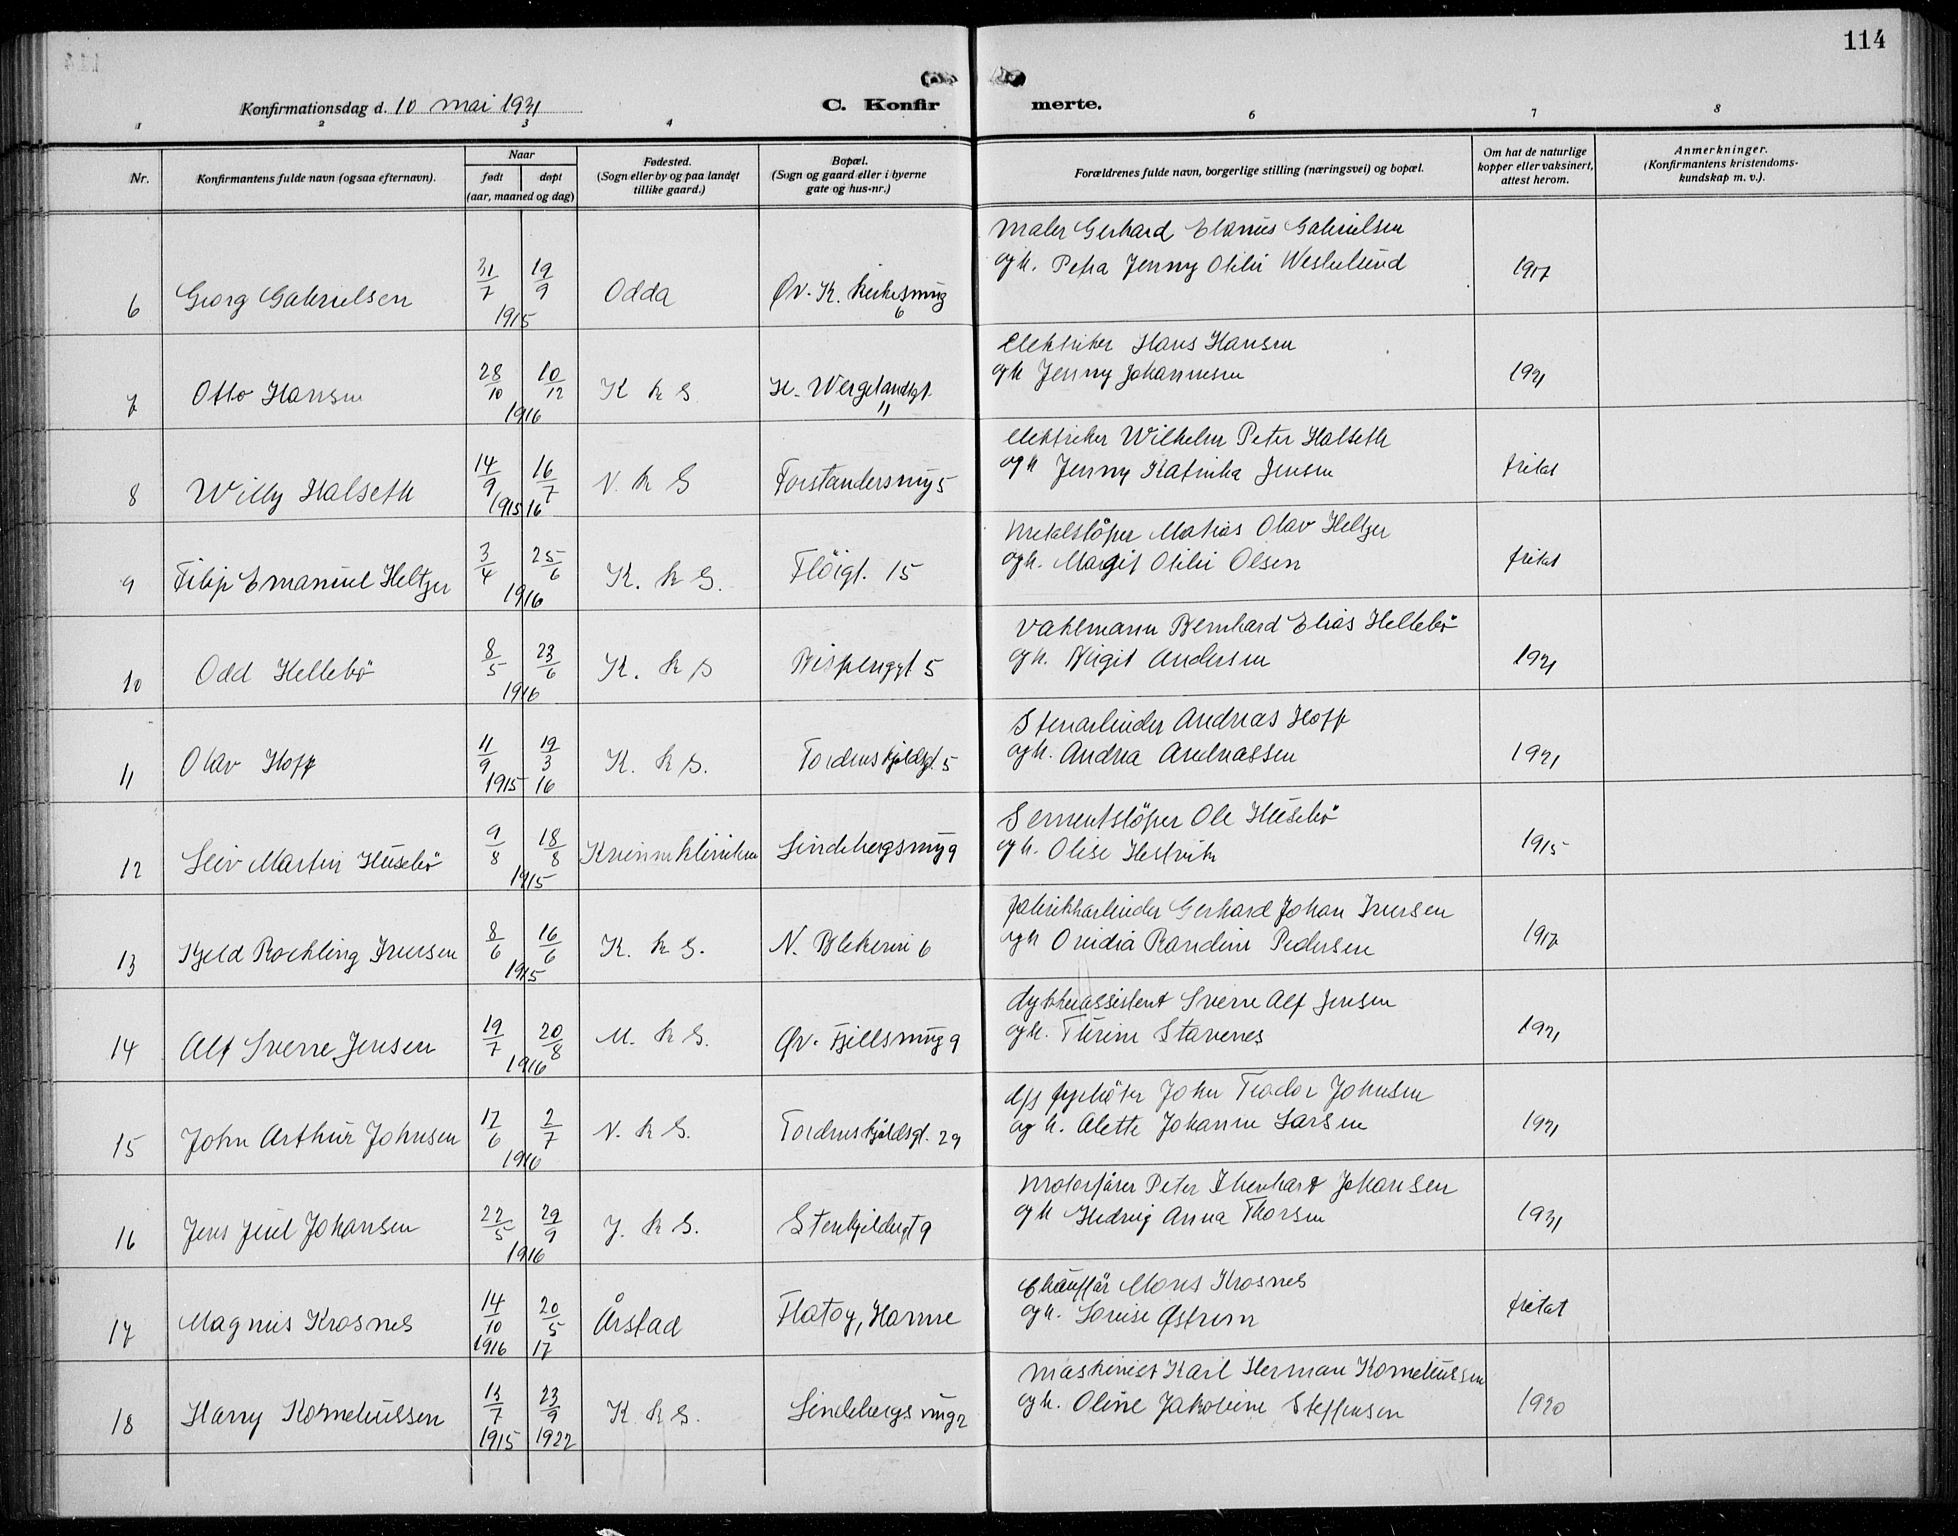 114
Konfirmationsdag d. 10 mai 1931
C. Konfirmerte.
1 2 3 4 6 7 8
Nr.
Konfirmantens fulde navn (ogsaa efternavn).
Naar
født døpt
(aar, maaned og dag)
Fødested.
(Sogn eller by og paa landet
tillike gaard.)
Bopæl.
(Sogn og gaard eller i byerne
gate og hus-nr.)
Forældrenes fulde navn, borgerlige stilling (næringsvei) og bopæl.
Om hat de naturlige
kopper eller vaksinert,
attest herom.
Anmerkninger.
(Konfirmantens kristendoms-
kundskap m. v.).
Maler Gerhard Gabrielsen
og h. Petra Jenny Otilie
6 Georg Gabrielsen 31/7 19/9 Odda Øv. K. Kirkesmug 1917
1915 6
Elektriker Hans Hansen
7 Otto Hansen 28/10 10/12 K K S H. Wergelandsgt. og h Jenny Johannesen 1921
1916 11
elektriker Wilhelm Peter Halseth
8 Willy Halseth 14/9 16/7 N. K S Forstandersmug 5 og h Jenny Katrina Jensen fritat
1915 16
Metalstöper Matias Olav Heltzer
9 Filip Emanuel Heltzer 3/4 25/6 K. K S. Flöigt. 15 og h. Magit Otilie Olsen fritat
1916
Vaktmann Bernhard Elias Hellebö
10 Odd Hellebö 8/5 23/6 K. K S Bispenggt 5 og h. Birgit Andersen 1921
1916
Stenarbeider Andreas Hopp
11 Olav Hopp 11/9 19/3 K. K S. Tordenskjoldsgt. 5 og h. Andrea Andreassen 1921
1915 16
Sementstöper Ole Husebö
12 Leiv Martin Husebö 9/8 18/8 Kvinneklinikken Lindebergsmug 9 og h. Olise 1915
1915
Fabrikkarbeider Gerhard Johan Iversen
13 Kjeld Rockling Iversen 8/6 16/6 K. K S. N. Blekevei 6 og h Ovidia Randine Pedersen 1917
1915
dykkerassistent Sverre Alf Jensen
14 Alf Sverre Jensen 19/7 20/8 M. K S. Øv. Fjellsmug 9 og h. Turine Stavenes 1921
1916
d/s fyrböter John Teodor Johnsen
15 John Arthur Johnsen 17/6 2/7 N. K S. Tordenskjoldsgt. 29 og h. Alette Johanne Larsen 1921
1916
Motorförer Peter Johansen
16 Jens Juel Johansen 22/5 29/9 J. K S. Stenkjeldergt 9 og h Hedvig Anna Thorsen 1931
1916
Chaufför Mons Krosnes
17 Magnus Krosnes 14/10 20/5 Årstad Flatoy, Hamre og h. Lovise Østrem fritat
1916 17
Maskinist Karl Herman Korneliussen
18 Harry Korneliussen 13/7 23/9 K K S. Lindebergsmug 2 og h. Oline Jakobine Steffensen 1920
1915 1922